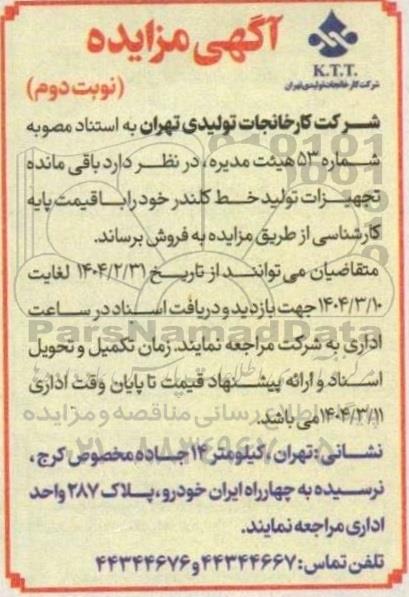 آگهی مزایده
K.T.T.
شرکت کارخانجات تولیدی تهران
(نوبت دوم)
شرکت کارخانجات تولیدی تهران به استناد مصوبه
شماره ۵۳ هیئت مدیره، در نظر دارد باقی مانده
تجهیزات تولید خط کلندر خود را با قیمت پایه
کارشناسی از طریق مزایده به فروش برساند.
متقاضیان می توانند از تاریخ ۱۴۰۴/۲/۳۱ لغایت
۱۴۰۴/۳/۱۰ جهت بازدید و دریافت اسناد در ساعت
اداری به شرکت مراجعه نمایند. زمان تکمیل و تحویل
اسناد و ارائه پیشنهاد قیمت تا پایان وقت اداری
۱۴۰۴/۳/۱۱ می باشد.
نشانی: تهران، کیلومتر ۱۴ جاده مخصوص کرج،
نرسیده به چهارراه ایران خودرو، پلاک ۲۸۷ واحد
اداری مراجعه نمایند.
تلفن تماس: ۴۴۳۴۴۶۶۷ و ۴۴۳۴۴۶۷۶
ParsNamadData
پایگاه اطلاع رسانی مناقصه و مزایده